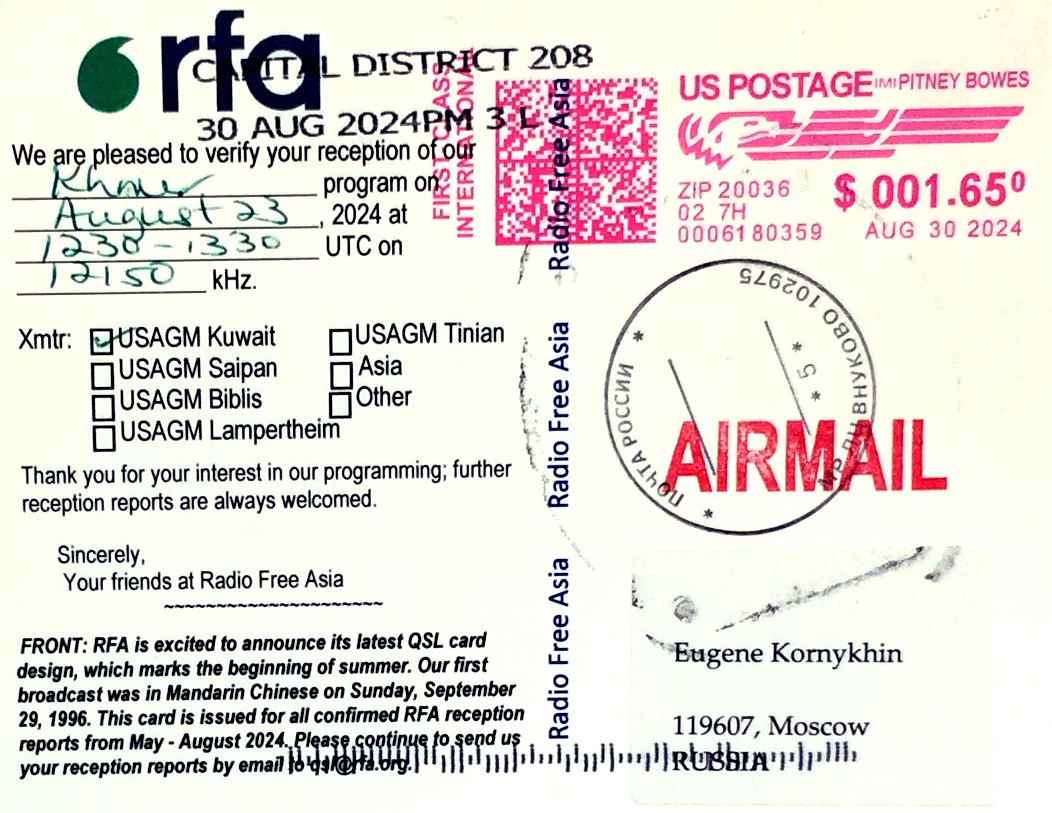 rfa
CAPITAL DISTRICT 208
30 AUG 2024PM 3 L
We are pleased to verify your reception of our
Khmer program on
August 23, 2024 at
1230-1330 UTC on
12150 kHz.
Xmtr:
USAGM Kuwait
USAGM Saipan
USAGM Biblis
USAGM Lampertheim
USAGM Tinian
Asia
Other
Thank you for your interest in our programming; further
reception reports are always welcomed.
Sincerely,
Your friends at Radio Free Asia
~~~~~~~~~~~~~~~~~~~~~~
FRONT: RFA is excited to announce its latest QSL card
design, which marks the beginning of summer. Our first
broadcast was in Mandarin Chinese on Sunday, September
29, 1996. This card is issued for all confirmed RFA reception
reports from May - August 2024. Please continue to send us
your reception reports by email to qsl@rfa.org.
Radio Free Asia
Radio Free Asia
Radio Free Asia
FIRST-CLASS
INTERNATIONAL
US POSTAGE IMI PITNEY BOWES
ZIP 20036
02 7H
0006180359
$ 001.65⁰
AUG 30 2024
ПОЧТА РОССИИ
МР ЛЦ ВНУКОВО 102975
* 5 *
AIRMAIL
Eugene Kornykhin
119607, Moscow
RUSSIA